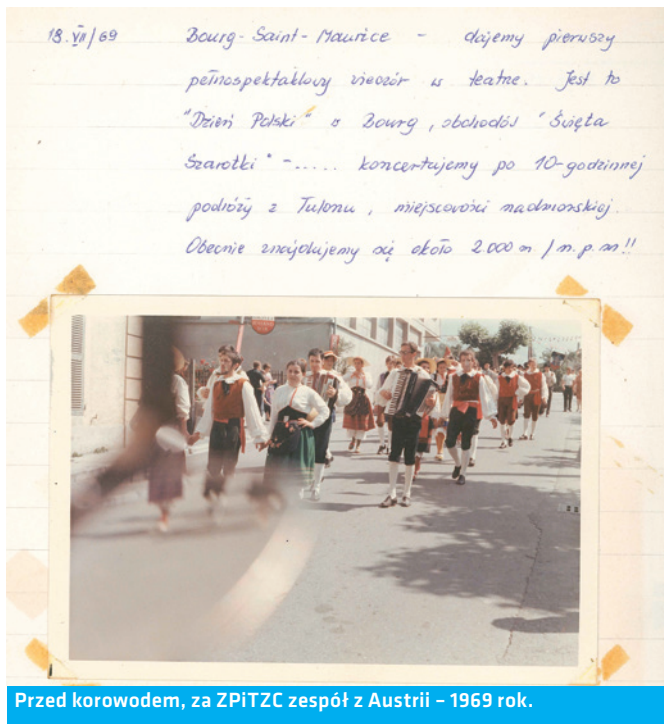 18.VII/69 Bourg-Saint-Maurice - dajemy pierwszy
pełnospektaklowy wieczór w teatrze. Jest to
"Dzień Polski" w Bourg, obchodów "Święta
Szarotki" -..... koncertujemy po 10-godzinnej
podróży z Tulonu, miejscowości nadmorskiej.
Obecnie znajdujemy się około 2.000 m /n.p.m!!
Przed korowodem, za ZPiTZC zespół z Austrii – 1969 rok.